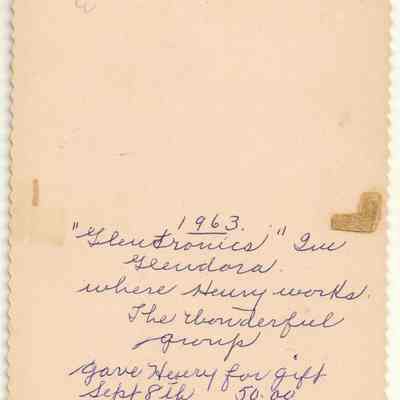 1963.
"Glentronics" In
Glendora.
where Henry works.
The wonderful
group
gave Henry for gift
Sept 8th 50.00